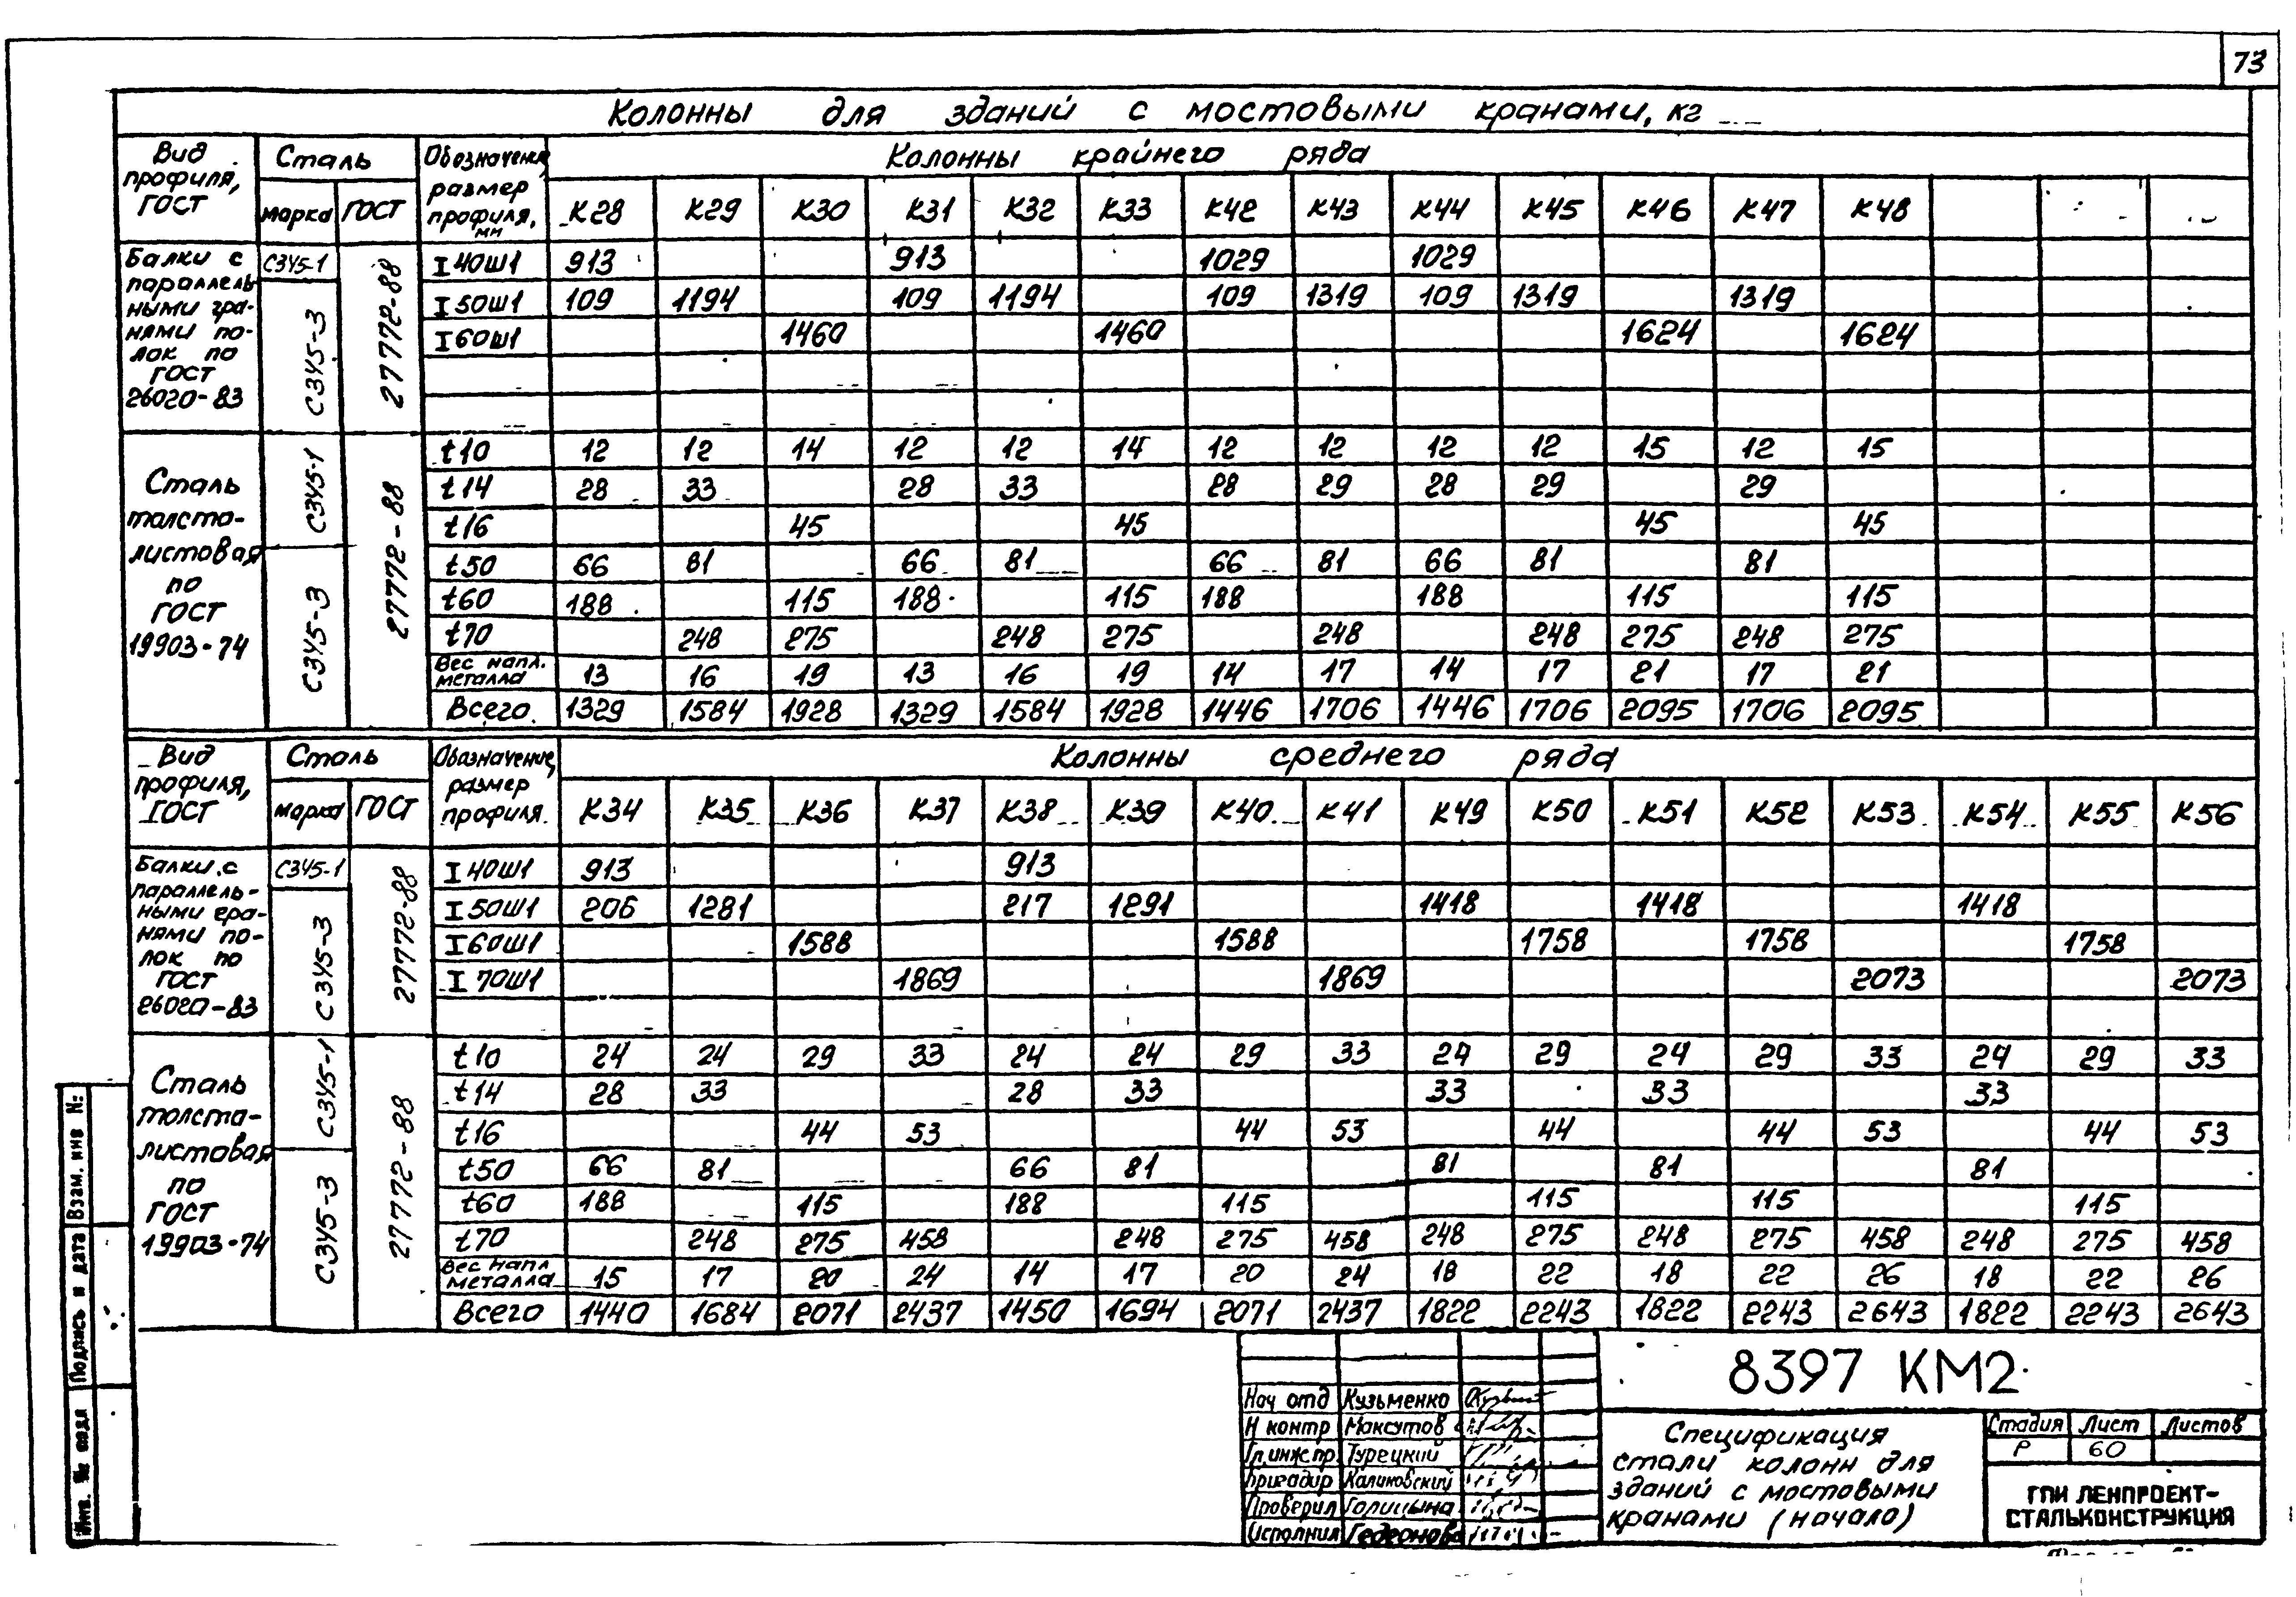 73
Колонны для зданий с мостовыми кранами, кг
Вид профиля, ГОСТ | Сталь | Обозначение, размер профиля, мм | Колонны крайнего ряда
марка | ГОСТ | К28 | К29 | К30 | К31 | К32 | К33 | К42 | К43 | К44 | К45 | К46 | К47 | К48
Балки с параллельными гранями полок по ГОСТ 26020-83 | С345-1 | С345-3 | 27772-88
I 40Ш1 | 913 | | | 913 | | | 1029 | | 1029 | | | |
I 50Ш1 | 109 | 1194 | | 109 | 1194 | | 109 | 1319 | 109 | 1319 | | 1319 |
I 60Ш1 | | | 1460 | | | 1460 | | | | | 1624 | | 1624
Сталь толстолистовая по ГОСТ 19903-74 | С345-1 | С345-3 | 27772-88
t10 | 12 | 12 | 14 | 12 | 12 | 14 | 12 | 12 | 12 | 12 | 15 | 12 | 15
t14 | 28 | 33 | | 28 | 33 | | 28 | 29 | 28 | 29 | | 29 |
t16 | | | 45 | | | 45 | | | | | 45 | | 45
t50 | 66 | 81 | | 66 | 81 | | 66 | 81 | 66 | 81 | | 81 |
t60 | 188 | | 115 | 188 | | 115 | 188 | | 188 | | 115 | | 115
t70 | | 248 | 275 | | 248 | 275 | | 248 | | 248 | 275 | 248 | 275
Вес напл. металла | 13 | 16 | 19 | 13 | 16 | 19 | 14 | 17 | 14 | 17 | 21 | 17 | 21
Всего | 1329 | 1584 | 1928 | 1329 | 1584 | 1928 | 1446 | 1706 | 1446 | 1706 | 2095 | 1706 | 2095
Вид профиля, ГОСТ | Сталь | Обозначение, размер профиля | Колонны среднего ряда
марка | ГОСТ | К34 | К35 | К36 | К37 | К38 | К39 | К40 | К41 | К49 | К50 | К51 | К52 | К53 | К54 | К55 | К56
Балки с параллельными гранями полок по ГОСТ 26020-83 | С345-1 | С345-3 | 27772-88
I 40Ш1 | 913 | | | | 913 | | | | | | | | | | |
I 50Ш1 | 206 | 1281 | | | 217 | 1291 | | | 1418 | | 1418 | | | 1418 | |
I 60Ш1 | | | 1588 | | | | 1588 | | | 1758 | | 1758 | | | 1758 |
I 70Ш1 | | | | 1869 | | | | 1869 | | | | | 2073 | | | 2073
Сталь толстолистовая по ГОСТ 19903-74 | С345-1 | С345-3 | 27772-88
t10 | 24 | 24 | 29 | 33 | 24 | 24 | 29 | 33 | 24 | 29 | 24 | 29 | 33 | 24 | 29 | 33
t14 | 28 | 33 | | | 28 | 33 | | | 33 | | 33 | | | 33 | |
t16 | | | 44 | 53 | | | 44 | 53 | | 44 | | 44 | 53 | | 44 | 53
t50 | 66 | 81 | | | 66 | 81 | | | 81 | | 81 | | | 81 | |
t60 | 188 | | 115 | | 188 | | 115 | | | 115 | | 115 | | | 115 |
t70 | | 248 | 275 | 458 | | 248 | 275 | 458 | 248 | 275 | 248 | 275 | 458 | 248 | 275 | 458
Вес напл металла | 15 | 17 | 20 | 24 | 14 | 17 | 20 | 24 | 18 | 22 | 18 | 22 | 26 | 18 | 22 | 26
Всего | 1440 | 1684 | 2071 | 2437 | 1450 | 1694 | 2071 | 2437 | 1822 | 2243 | 1822 | 2243 | 2643 | 1822 | 2243 | 2643
Взам. инв №
Подпись и дата
Инв. № подл
Нач отд Кузьменко
Н контр Максутов
Гл.инж.пр. Турецкий
Бригадир Калиновский
Проверил Голицына
Исполнил Гедеонова
8397 КМ2
Спецификация
стали колонн для
зданий с мостовыми
кранами (начало)
Стадия Лист Листов
Р 60
ГПИ ЛЕНПРОЕКТ-
СТАЛЬКОНСТРУКЦИЯ